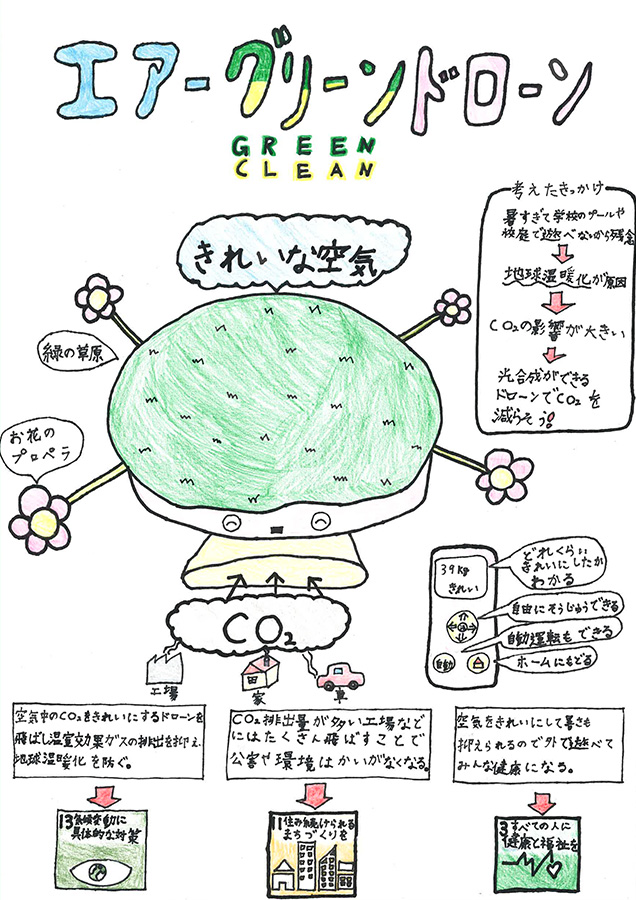 エアーグリーンドローン
GREEN
CLEAN
考えたきっかけ
暑すぎて学校のプールや
校庭で遊べないから残念
地球温暖化が原因
CO₂の影響が大きい
光合成ができる
ドローンでCO₂を
減らそう!
きれいな空気
緑の草原
お花の
プロペラ
CO₂
工場
家
車
39Kg
きれい
自動
どれくらい
きれいにしたか
わかる
自由にそうじゅうできる
自動運転もできる
ホームにもどる
空気中のCO₂をきれいにするドローンを
飛ばし温室効果ガスの排出を抑え、
地球温暖化を防ぐ。
CO₂排出量が多い工場など
にはたくさん飛ばすことで
公害や環境はかいがなくなる。
空気をきれいにして暑さも
抑えられるので外で遊べて
みんな健康になる。
13気候変動に
具体的な対策
11住み続けられる
まちづくりを
3すべての人に
健康と福祉を